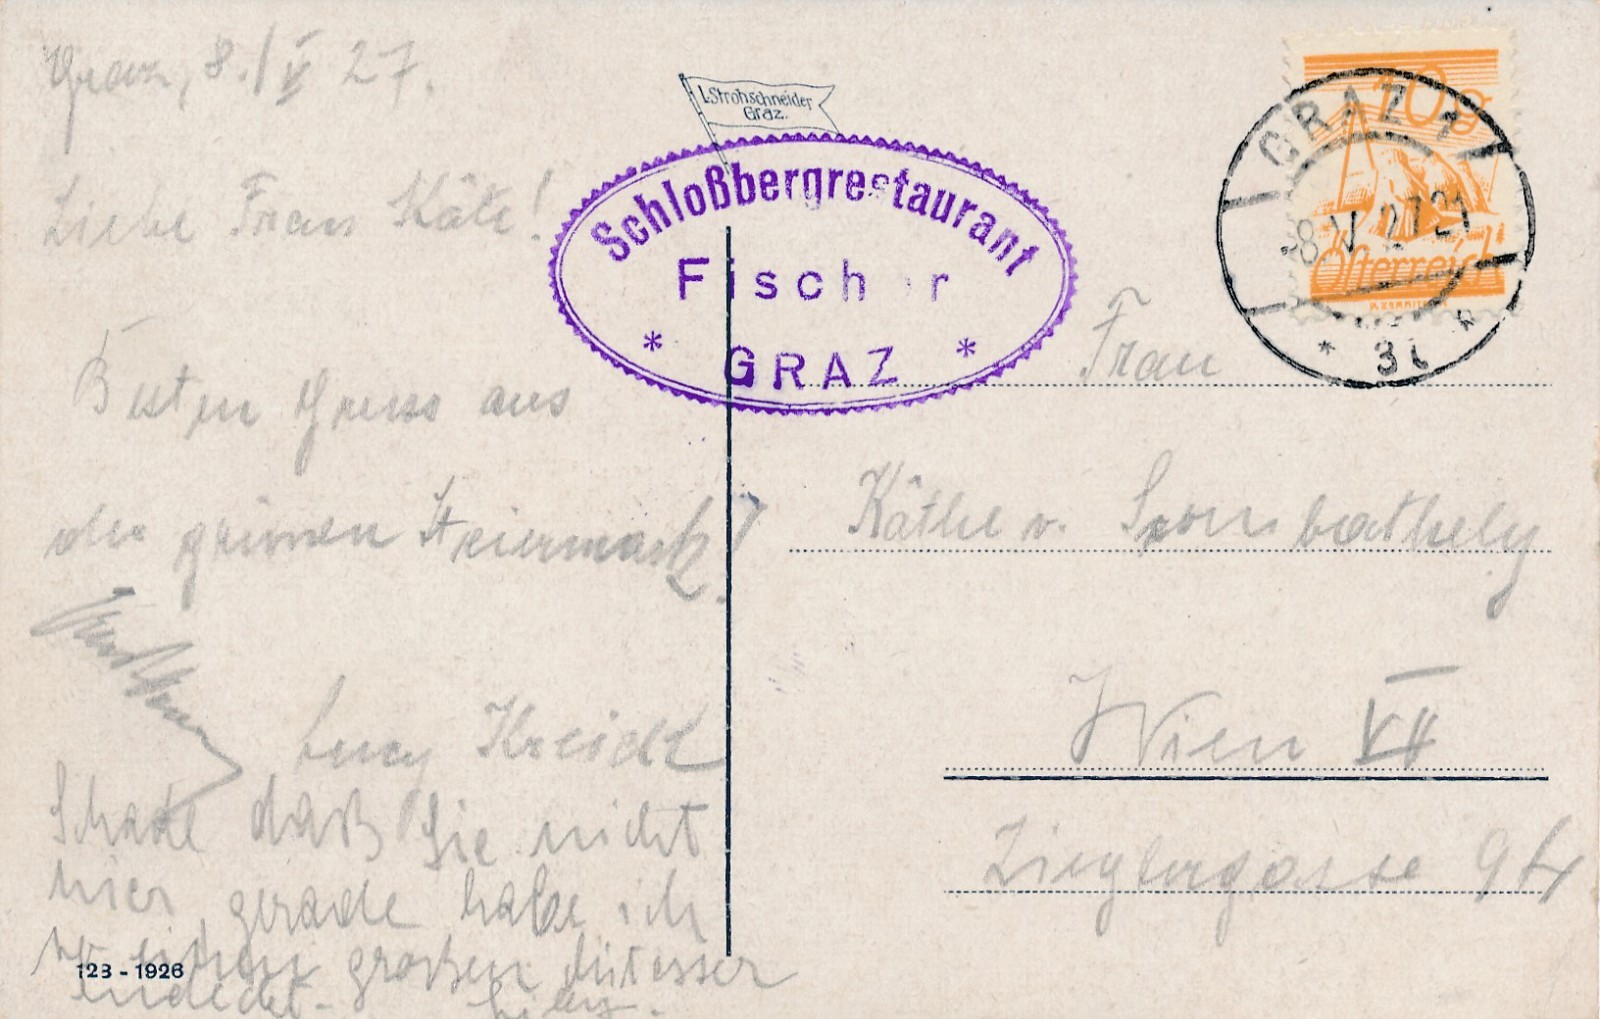 Graz, 8./V 27.
Liebe Frau Käte!
Besten Gruss aus
der grünen Steiermark!
Lucy Kreidl
Schade daß Sie nicht
hier, gerade habe ich
großen
entdeckt.
I. Strohschneider
Graz.
Schloßbergrestaurant
Fischer
* GRAZ *
10g
Österreich
GRAZ 1
-8 V 27 21
* 3t *
Frau
Käthe v. Szombathely
Wien VII
Zieglergasse 94
123 - 1926